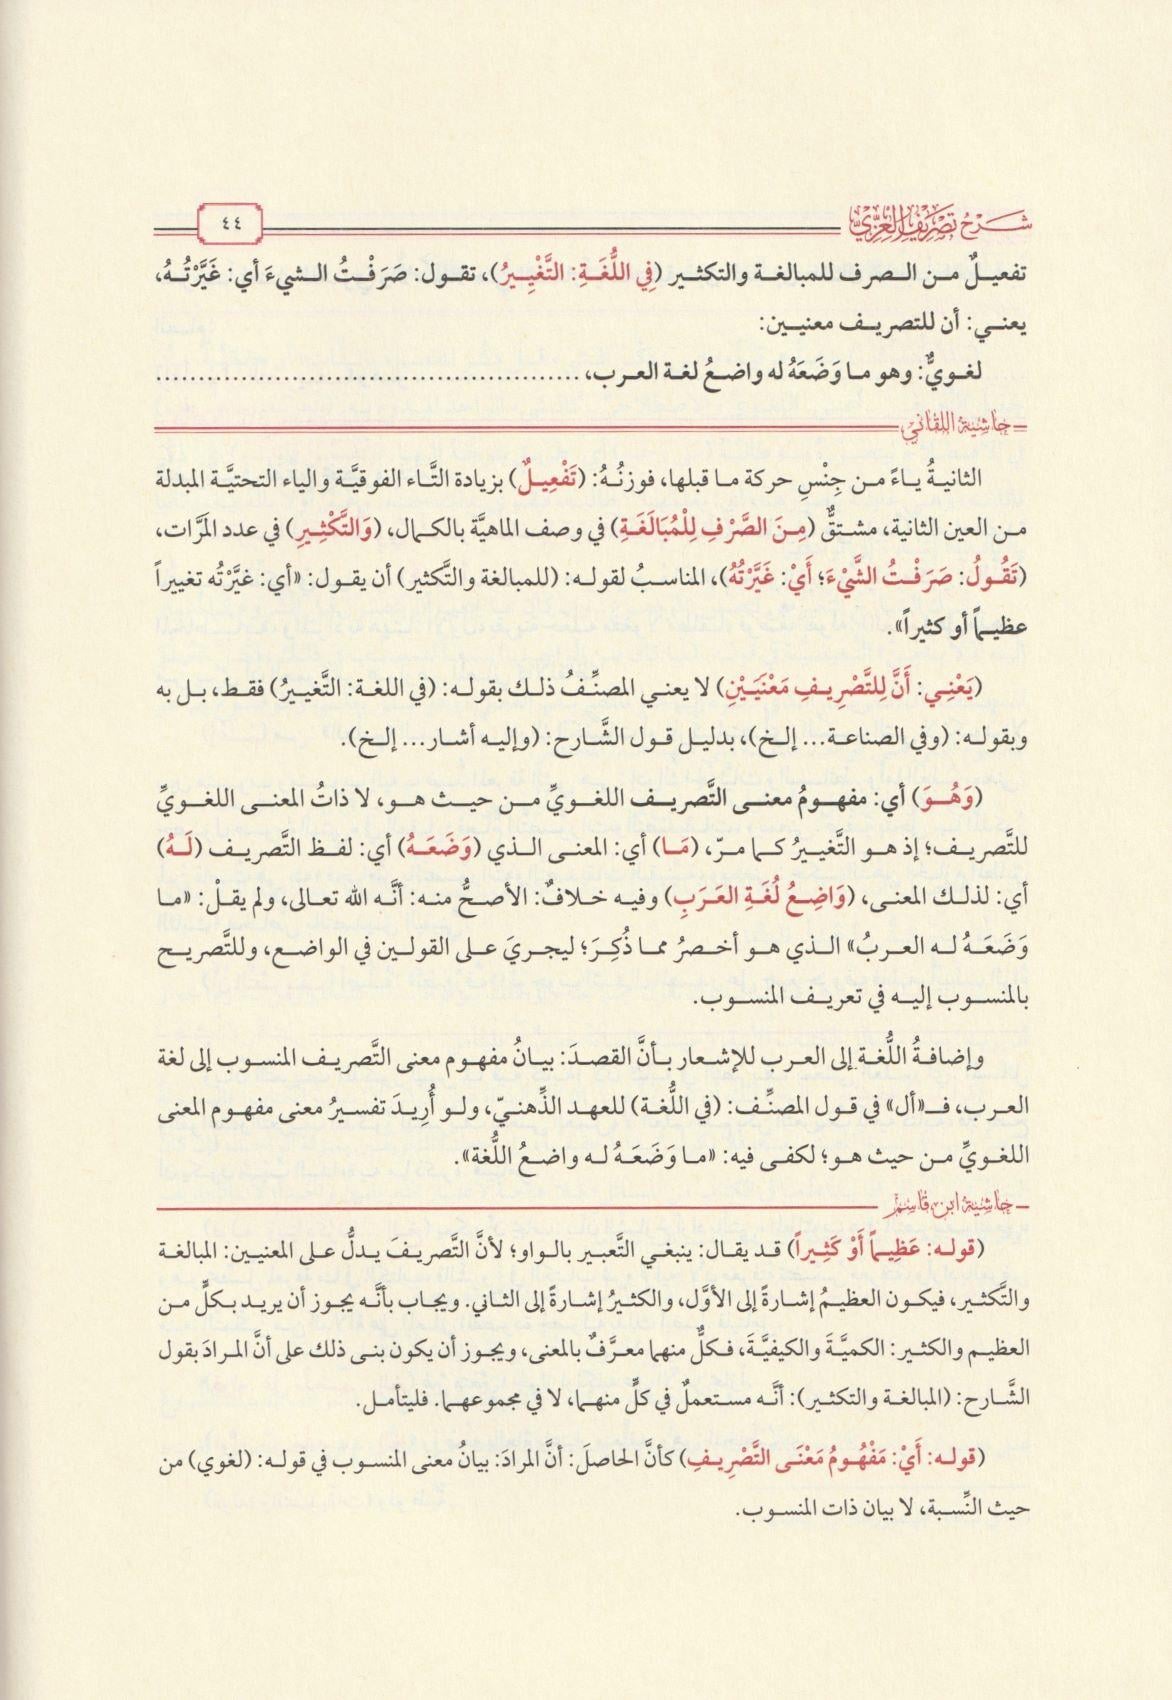 شَرْحُ تَصْرِيفِ الْعِزِّيِّ
٤٤
تفعيلٌ من الصرف للمبالغة والتكثير (فِي اللُّغَةِ: التَّغْيِيرُ)، تقول: صَرَفْتُ الشيءَ أي: غَيَّرْتُهُ،
يعني: أن للتصريف معنيين:
لغويٌّ: وهو ما وَضَعَهُ له واضعُ لغة العرب، ................................................
حاشية اللقاني
الثانيةُ ياءً من جِنْسِ حركة ما قبلها، فوزنُهُ: (تَفْعِيلٌ) بزيادة التَّاء الفوقيَّة والياء التحتيَّة المبدلة
من العين الثانية، مشتقٌّ (مِنَ الصَّرْفِ لِلْمُبَالَغَةِ) في وصف الماهيَّة بالكمال، (وَالتَّكْثِيرِ) في عدد المرَّات،
(تَقُولُ: صَرَفْتُ الشَّيْءَ؛ أَيْ: غَيَّرْتُهُ)، المناسبُ لقوله: (للمبالغة والتَّكثير) أن يقول: «أي: غيَّرْتُه تغييراً
عظيماً أو كثيراً».
(يَعْنِي: أَنَّ لِلتَّصْرِيفِ مَعْنَيَيْنِ) لا يعني المصنِّفُ ذلك بقوله: (في اللغة: التَّغييرُ) فقط، بل به
وبقوله: (وفي الصناعة... إلخ)، بدليل قول الشَّارح: (وإليه أشار... إلخ).
(وَهُوَ) أي: مفهومُ معنى التَّصريف اللغويِّ من حيث هو، لا ذاتُ المعنى اللغويِّ
للتَّصريف؛ إذ هو التَّغييرُ كما مرّ، (مَا) أي: المعنى الذي (وَضَعَهُ) أي: لفظ التَّصريف (لَهُ)
أي: لذلك المعنى، (وَاضِعُ لُغَةِ العَرَبِ) وفيه خلافٌ: الأصحُّ منه: أنَّه الله تعالى، ولم يقلْ: «ما
وَضَعَهُ له العربُ» الذي هو أخصرُ مما ذُكِرَ؛ ليجريَ على القولين في الواضع، وللتَّصريح
بالمنسوب إليه في تعريف المنسوب.
وإضافةُ اللُّغة إلى العرب للإشعار بأنَّ القصدَ: بيانُ مفهوم معنى التَّصريف المنسوب إلى لغة
العرب، فـ«أل» في قول المصنِّف: (في اللُّغة) للعهد الذِّهنيّ، ولو أُرِيدَ تفسيرُ معنى مفهوم المعنى
اللغويِّ من حيث هو؛ لكفى فيه: «ما وَضَعَهُ له واضعُ اللُّغة».
حاشية ابن قاسم
(قوله: عَظِيماً أَوْ كَثِيراً) قد يقال: ينبغي التَّعبير بالواو؛ لأنَّ التَّصريفَ يدلُّ على المعنيين: المبالغة
والتَّكثير، فيكون العظيمُ إشارةً إلى الأوَّل، والكثيرُ إشارةً إلى الثاني. ويجاب بأنَّه يجوز أن يريد بكلٍّ من
العظيم والكثير: الكميَّةَ والكيفيَّةَ، فكلٌّ منهما معرَّفٌ بالمعنى، ويجوز أن يكون بنى ذلك على أنَّ المرادَ بقول
الشَّارح: (المبالغة والتكثير): أنَّه مستعملٌ في كلٍّ منهما، لا في مجموعهما. فليتأمل.
(قوله: أَيْ: مَفْهُومُ مَعْنَى التَّصْرِيفِ) كأنَّ الحاصلَ: أنَّ المرادَ: بيانُ معنى المنسوب في قوله: (لغوي) من
حيث النِّسبة، لا بيان ذات المنسوب.